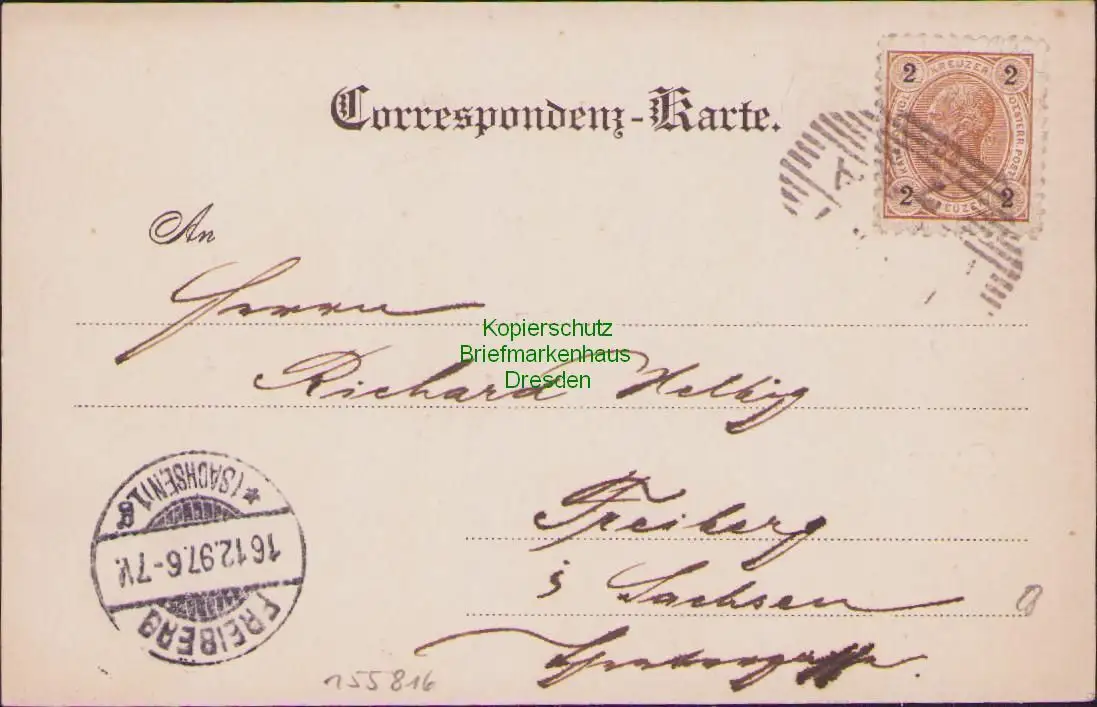 Correspondenz-Karte.
2 KREUZER 2
ÖSTERR. POST
2 KREUZER 2
An
Herrn
Kopierschutz
Briefmarkenhaus
Dresden
Richard Helbig
Freiberg
i Sachsen
FREIBERG
16.12.97.6-7V.
* (SACHSEN) 1 g
155816